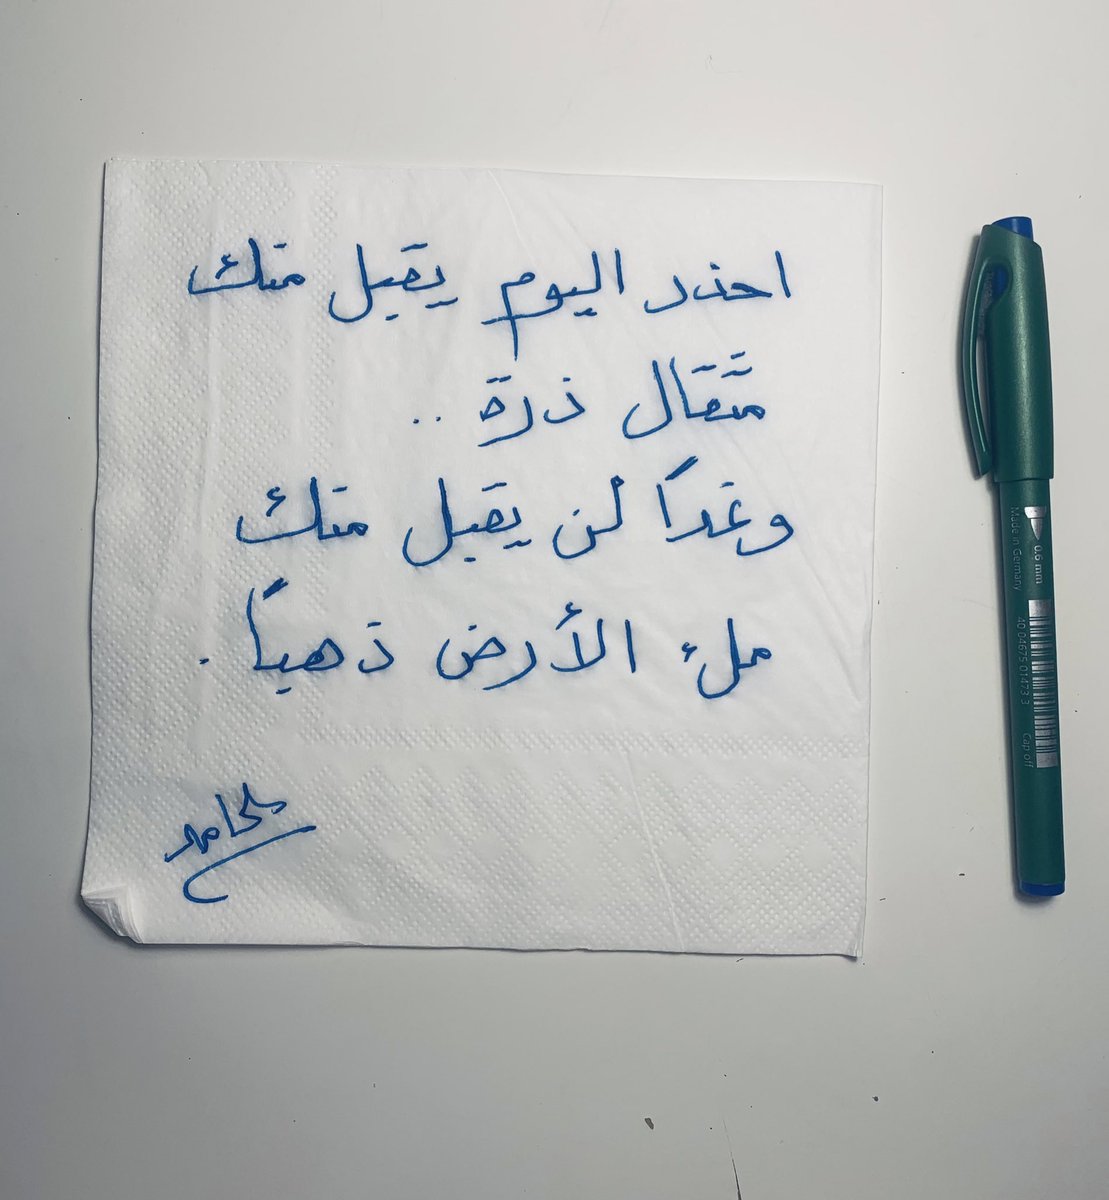 احذر اليوم يقبل منك
مثقال ذرة ..
وغداً لن يقبل منك
ملء الأرض ذهباً .
0.6 mm
Made in Germany
40 04675 01473 3
Cap off